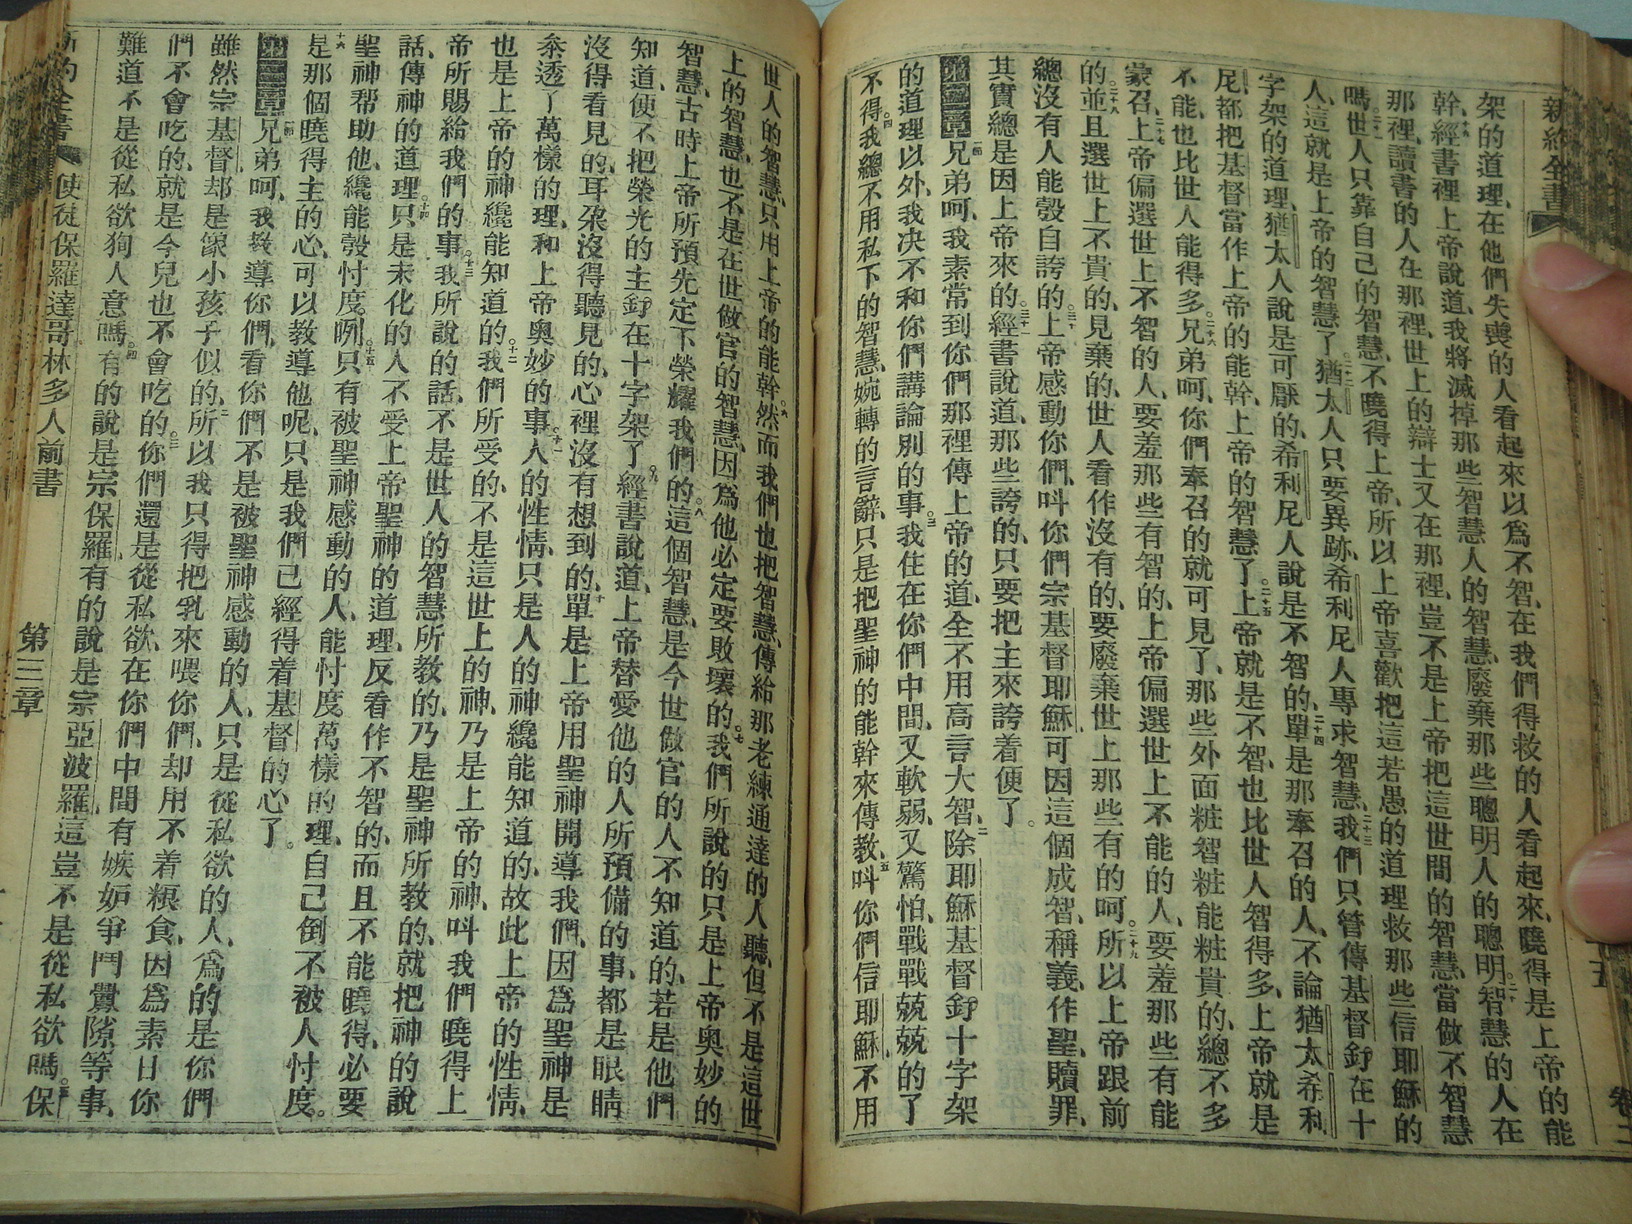 新約全書
架的道理、在他們失喪的人看起來以爲不智、在我們得救的人看起來、曉得是上帝的能
幹、經書裡上帝說道、我將滅掉那些智慧人的智慧、廢棄那些聰明人的聰明、二十智慧的人在
那裡、讀書的人在那裡、世上的辯士又在那裡、豈不是上帝把這世間的智慧、當做不智慧
嗎、二十一世人只靠自己的智慧、不曉得上帝、所以上帝喜歡把這若愚的道理、救那些信耶穌的
人、這就是上帝的智慧了、二十二猶太人只要異跡、希利尼人專求智慧、二十三我們只管傳基督釘在十
字架的道理、猶太人說是可厭的、希利尼人說是不智的、二十四單是那奉召的人、不論猶太希利
尼、都把基督當作上帝的能幹、上帝的智慧了、二十五上帝就是不智、也比世人智得多、上帝就是
不能、也比世人能得多、二十六兄弟呵、你們奉召的就可見了、那些外面粧智粧能粧貴的、總不多
蒙召、二十七上帝偏選世上不智的人、要羞那些有智的、上帝偏選世上不能的人、要羞那些有能
的、二十八並且選世上不貴的、見棄的、世人看作沒有的、要廢棄世上那些有的呵、二十九所以上帝跟前
總沒有人能彀自誇的、三十上帝感動你們、叫你們宗基督耶穌、可因這個成智、稱義、作聖、贖罪、
其實總是因上帝來的、三十一經書說道、那些誇的、只要把主來誇着便了。
第二章 一兄弟呵、我素常到你們那裡傳上帝的道、全不用高言大智、二除耶穌基督釘十字架
的道理以外、我决不和你們講論別的事、三我住在你們中間、又軟弱、又驚怕、戰戰兢兢的了
不得、四我總不用私下的智慧、婉轉的言辭、只是把聖神的能幹來傳教、五叫你們信耶穌、不用
世人的智慧、只用上帝的能幹、六然而我們也把智慧、傳給那老練通達的人聽、但不是這世
上的智慧、也不是在世做官的智慧、因爲他必定要敗壞的、七我們所說的只是上帝奧妙的
智慧、古時上帝所預先定下榮耀我們的、八這個智慧、是今世做官的人不知道的、若是他們
知道、便不把榮光的主釘在十字架了、九經書說道、上帝替愛他的人所預備的事、都是眼睛
沒得看見的、耳朶沒得聽見的、心裡沒有想到的、十單是上帝用聖神開導我們、因爲聖神是
叅透了萬樣的理、和上帝奧妙的事、十一人的性情、只是人的神纔能知道的、故此上帝的性情、
也是上帝的神纔能知道的、十二我們所受的、不是這世上的神、乃是上帝的神、叫我們曉得上
帝所賜給我們的事、十三我所說的話、不是世人的智慧所教的、乃是聖神所教的、就把神的說
話、傳神的道理、十四只是未化的人、不受上帝聖神的道理、反看作不智的、而且不能曉得、必要
聖神帮助他、纔能彀忖度咧、十五只有被聖神感動的人、能忖度萬樣的理、自己倒不被人忖度。
十六是那個曉得主的心、可以教導他呢、只是我們已經得着基督的心了。
第三章 一兄弟呵、我教導你們、看你們不是被聖神感動的人、只是從私欲的人、爲的是你們
雖然宗基督、却是像小孩子似的、二所以我只得把乳來喂你們、却用不着粮食、因爲素日你
們不會吃的、就是今兒也不會吃的、三你們還是從私欲、在你們中間有嫉妒爭鬥釁隙等事、
難道不是從私欲狥人意嗎、四有的說是宗保羅、有的說是宗亞波羅、這豈不是從私欲嗎。五保
新約全書 使徒保羅達哥林多人前書 第三章